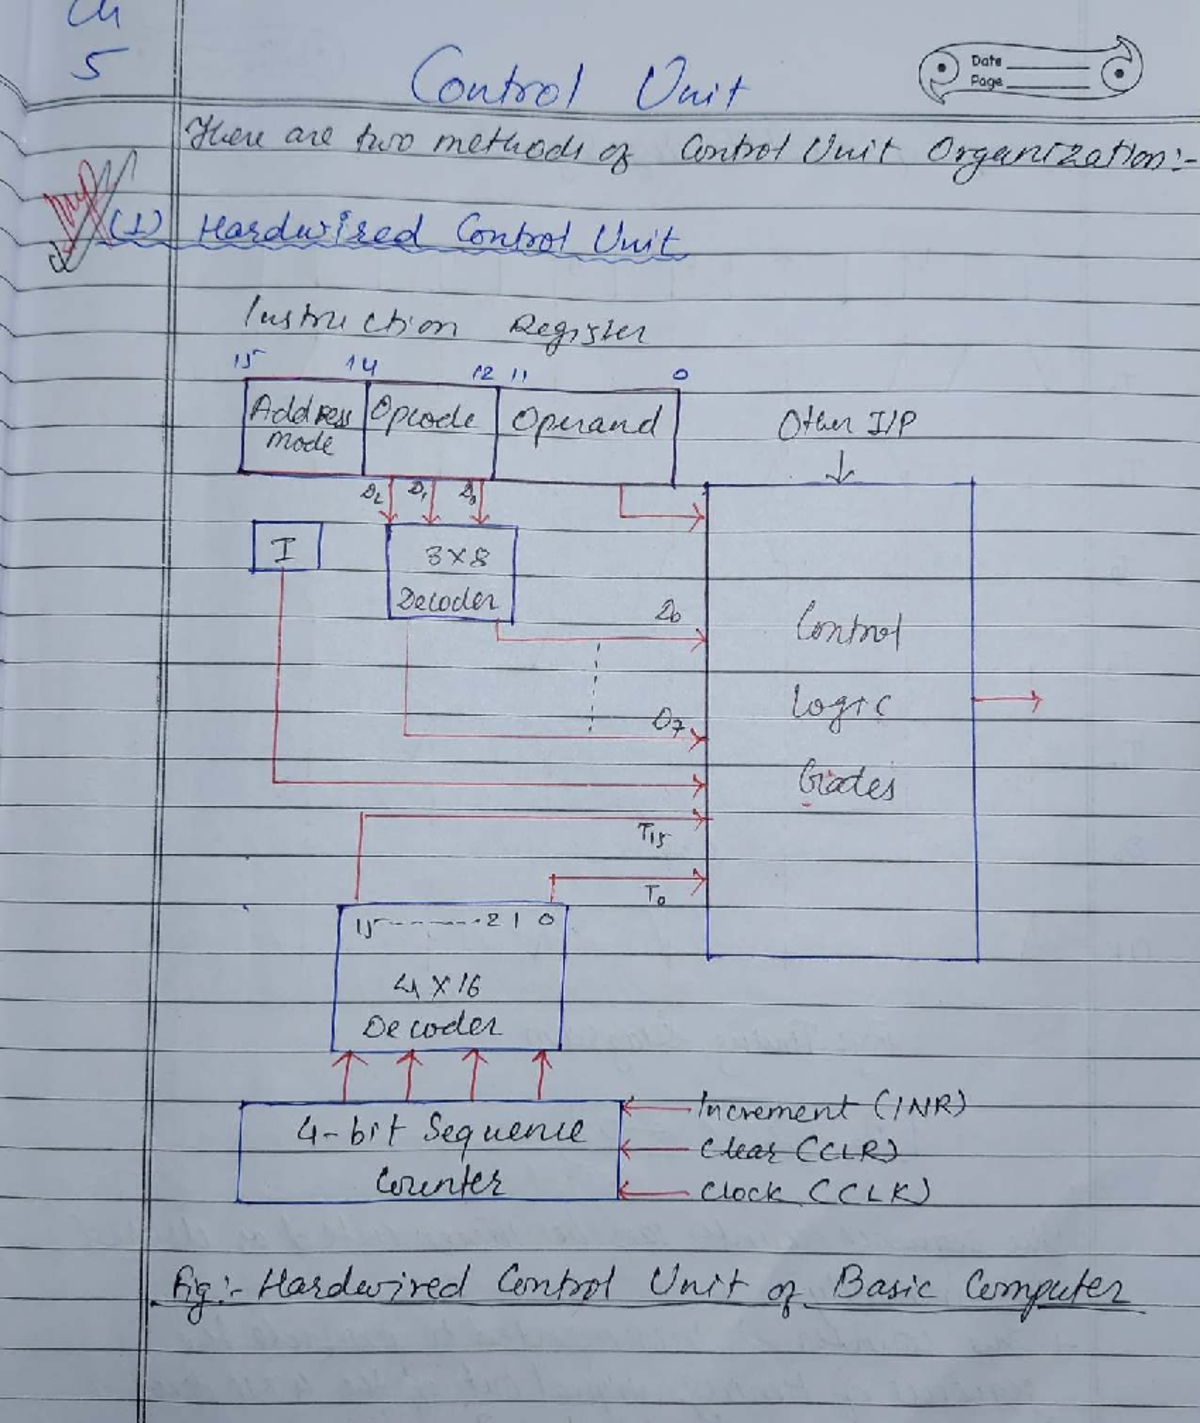 Ch
5
Control Unit
Date
Page
There are two methods of Control Unit Organization:-
(1) Hardwired Control Unit
Instruction Register
15 14 12 11 0
Address Mode
Opcode
Operand
Other I/P
D2 D1 D0
I
3X8
Decoder
D0
D7
Control
Logic
Gates
T15
T0
15 -------- 2 1 0
4 X 16
Decoder
4-bit Sequence
Counter
Increment (INR)
Clear (CLR)
Clock (CLK)
Fig:- Hardwired Control Unit of Basic Computer